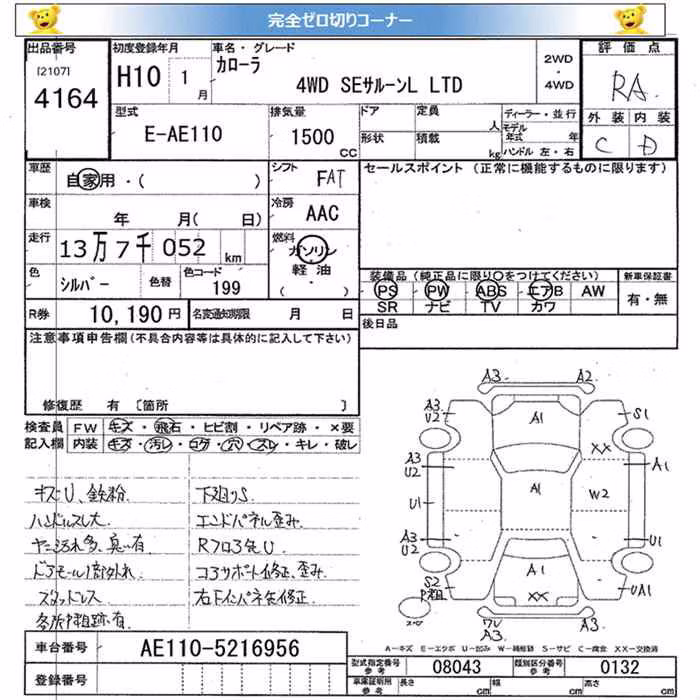 完全ゼロ切りコーナー
出品番号
[2107]
4164
初度登録年月
H10 1月
車名・グレード
カローラ
4WD SEサルーンL LTD
2WD
・
4WD
評価点
RA
外装 内装
C D
型式
E-AE110
排気量
1500
CC
ドア
形状
定員
人
積載
kg
ディーラー・並行
モデル年式 年
ハンドル 左・右
車歴
自家用・( )
シフト
FAT
セールスポイント(正常に機能するものに限ります)
車検
年 月( 日)
冷房
AAC
走行
13万7千052km
燃料
ガソリン
軽油
( ・ )
色
シルバー
色替
色コード
199
装備品(純正品に限り○をつけてください)
PS PW ABS エアB AW
SR ナビ TV カワ
新車保証書
有・無
R券
10,190円
名変通知期限 月 日
後日品
注意事項申告欄(不具合内容等は具体的に記入して下さい)
修復歴 有 〔箇所 〕
検査員記入欄
FW キズ・飛石・ヒビ割・リペア跡・×要
内装 キズ・汚レ・コゲ・穴・スレ・キレ・破レ
キズU、鉄粉
ハンドルスレ大
ヤニ汚れ多、臭い有
ドアモール1部外れ
スタッドレス
各所P粗跡有
下廻りS
エンドパネル歪み
Rフロア先U
コアサポート修正、歪み
右下インパネ気修正
A3 A2
A3
U2
A1
S1
XX
A3
U2
A1
A1
W2
U1
A3
U2
U1
S2
P粗
A1
XX
UA1
ワレ
A3
A3
A-キズ E-エクボ U-凹み W-補修跡 S-サビ C-腐食 XX-交換済
車台番号
AE110-5216956
登録番号
型式指定番号
参考
08043
類別区分番号
参考
0132
車庫証明用
参考
長さ cm
幅 cm
高さ cm